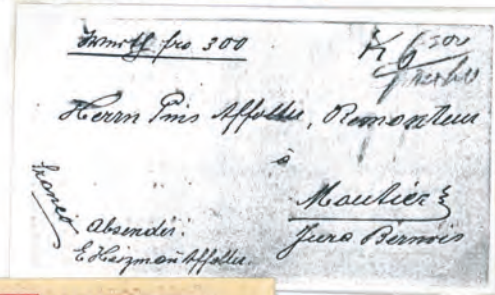 Werth frcs 300
Herrn Pius Affolter, Remonteur
à
Moutier
Jura Bernois
franco
Absender:
Affolter.